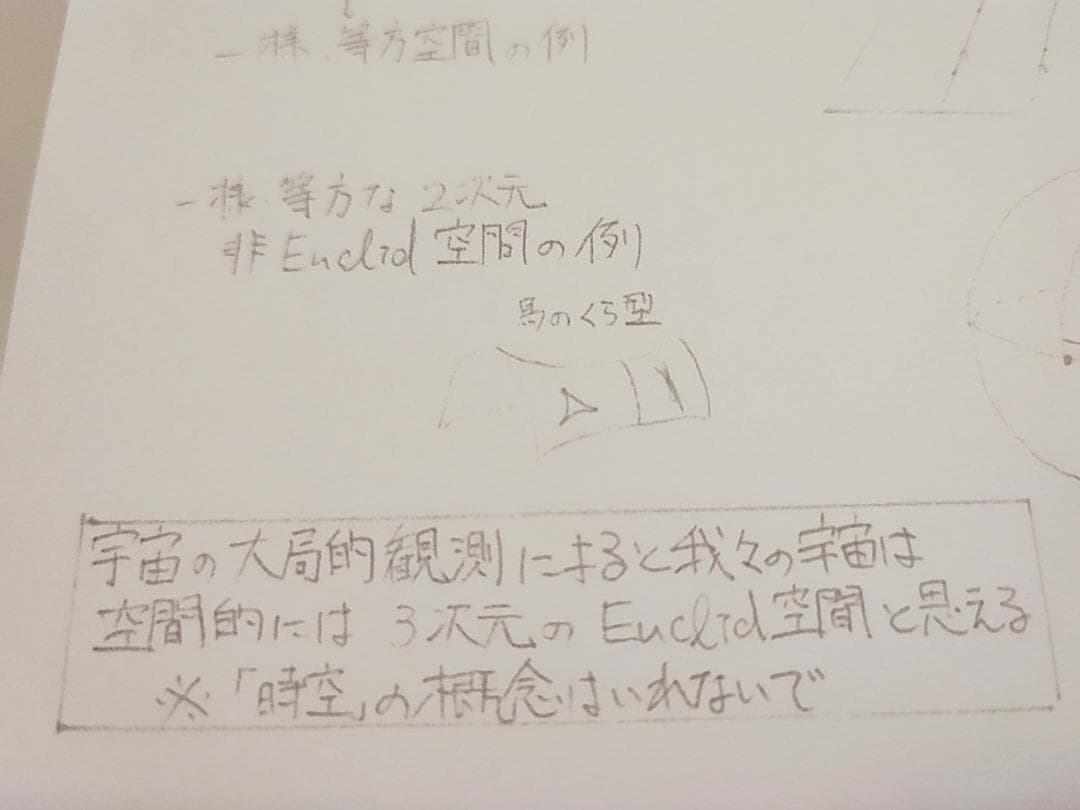 一様、等方空間の例
一様、等方な2次元
非Euclid空間の例
馬のくら型
宇宙の大局的観測によると我々の宇宙は
空間的には3次元のEuclid空間と思える
※「時空」の概念はいれないで